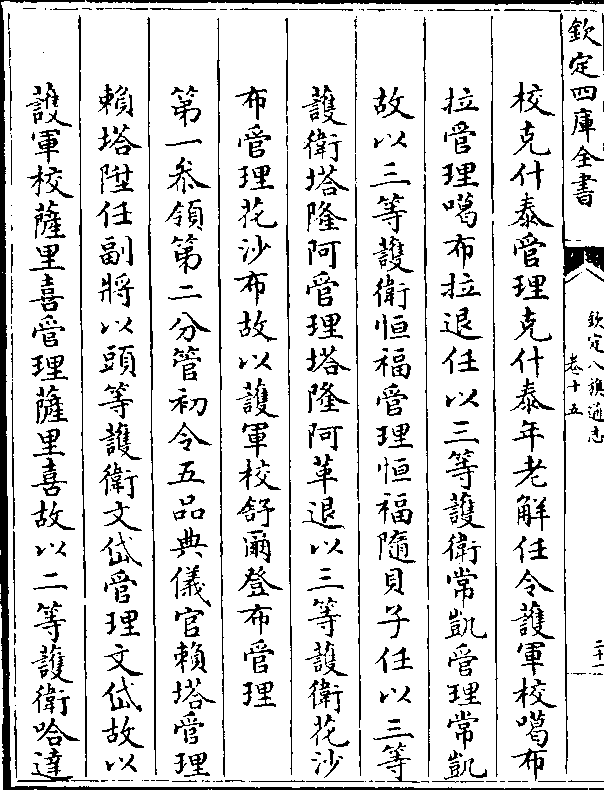 欽定四庫全書
欽定八旗通志
卷十五
二十一
校克什泰管理克什泰年老解任令護軍校噶布
拉管理噶布拉退任以三等護衛常凱管理常凱
故以三等護衛恒福管理恒福隨貝子任以三等
護衛塔隆阿管理塔隆阿革退以三等護衛花沙
布管理花沙布故以護軍校舒爾登布管理
第一叅領第二分管初令五品典儀官賴塔管理
賴塔陞任副將以頭等護衛文岱管理文岱故以
護軍校薩里喜管理薩里喜故以二等護衛哈達